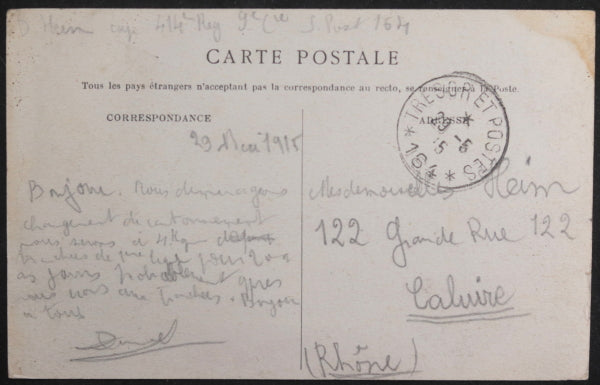 Heim cap 414e Reg 9e Cie S. Post 164
CARTE POSTALE
Tous les pays étrangers n'acceptant pas la correspondance au recto, se renseigner à la Poste.
CORRESPONDANCE
ADRESSE
TRESOR ET POSTES
29 -5
15
* 164 *
29 Mai 1915
Bonjour. Nous demenageons
changement de cantonnement
nous serons à 4 Kg
tranchées
jours probablement après
nous aux tranchées. Bonjour
à tous
Mesdemoiselles Heim
122 Grande Rue 122
Caluire
(Rhône)